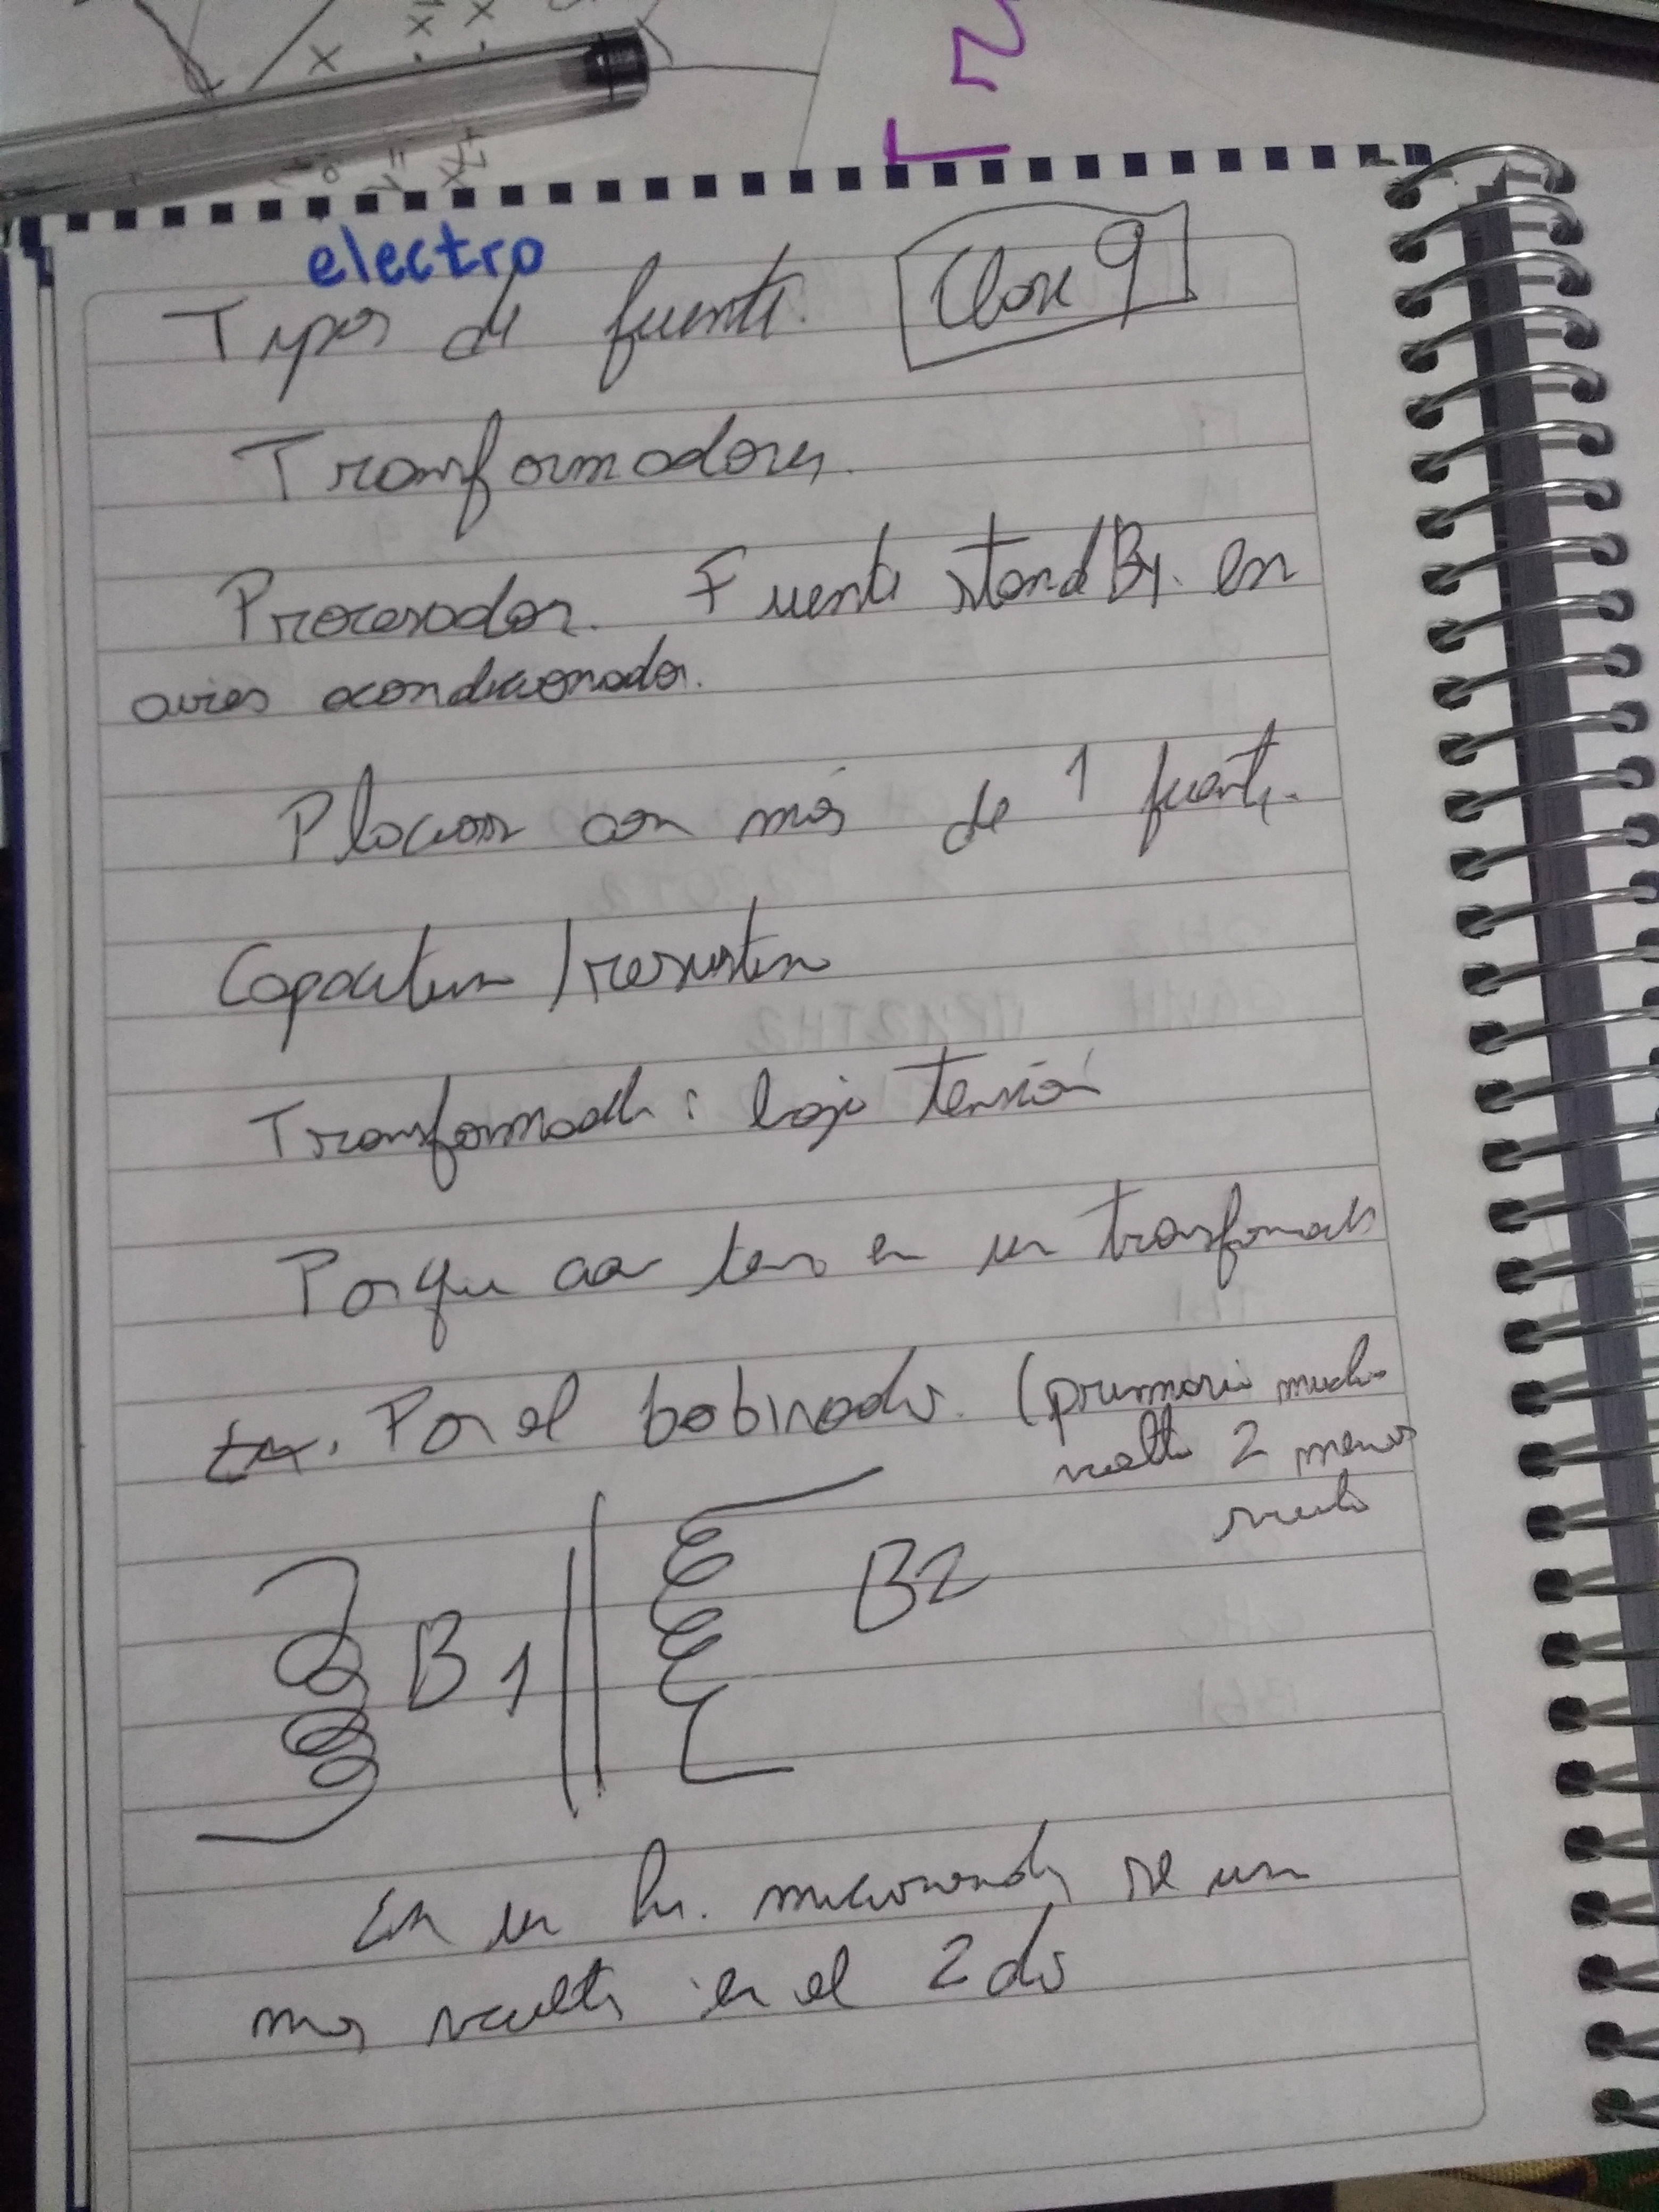 electro
Tipos de fuente. Clase 9
Transformadores.
Procesador. Fuente standBy. en
aires acondicionador.
Placas con más de 1 fuente.
Capacitiva / resistiva
Transformador: baja tensión
Porque cae tens en un transformador
Por el bobinado. (primario mucha
vuelta 2 menos
vuelta
B1 B2
En un hr. microondas se usa
mas vuelta en el 2do